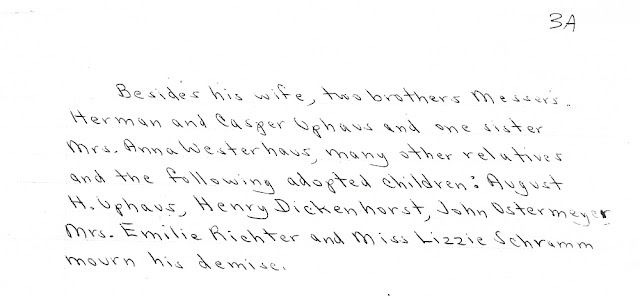 3A
Besides his wife, two brothers Messers.
Herman and Casper Uphaus and one sister
Mrs. Anna Westerhaus, many other relatives
and the following adopted children: August
H. Uphaus, Henry Dickenhorst, John Ostermeyer
Mrs. Emilie Richter and Miss Lizzie Schramm
mourn his demise.